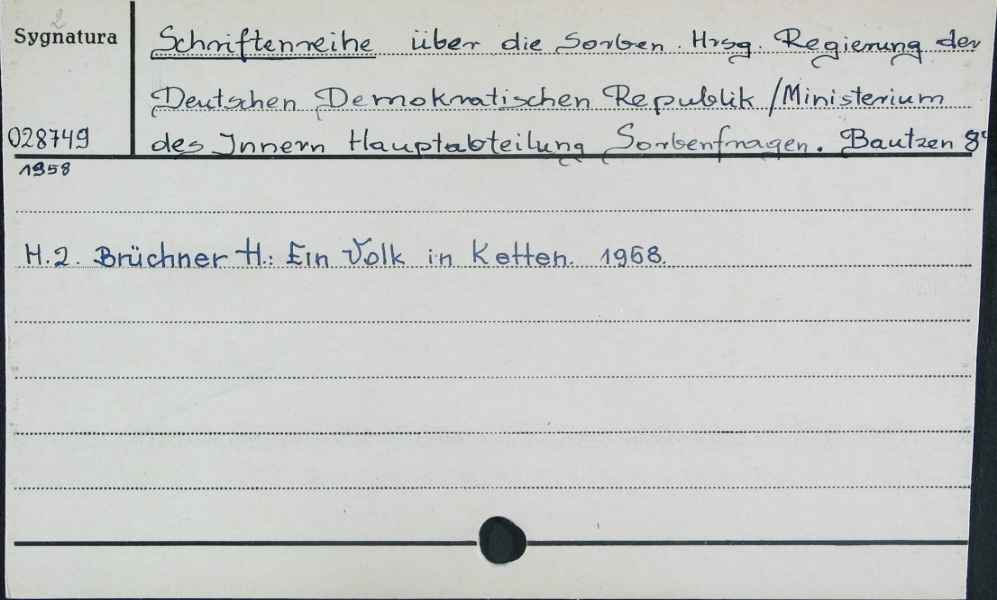 Sygnatura
Schriftenreihe über die Sorben. Hrsg. Regierung der
Deutschen Demokratischen Republik / Ministerium
028749
des Innern Hauptabteilung Sorbenfragen. Bautzen 8°
1958
H.2. Brüchner H.: Ein Volk in Ketten. 1968.